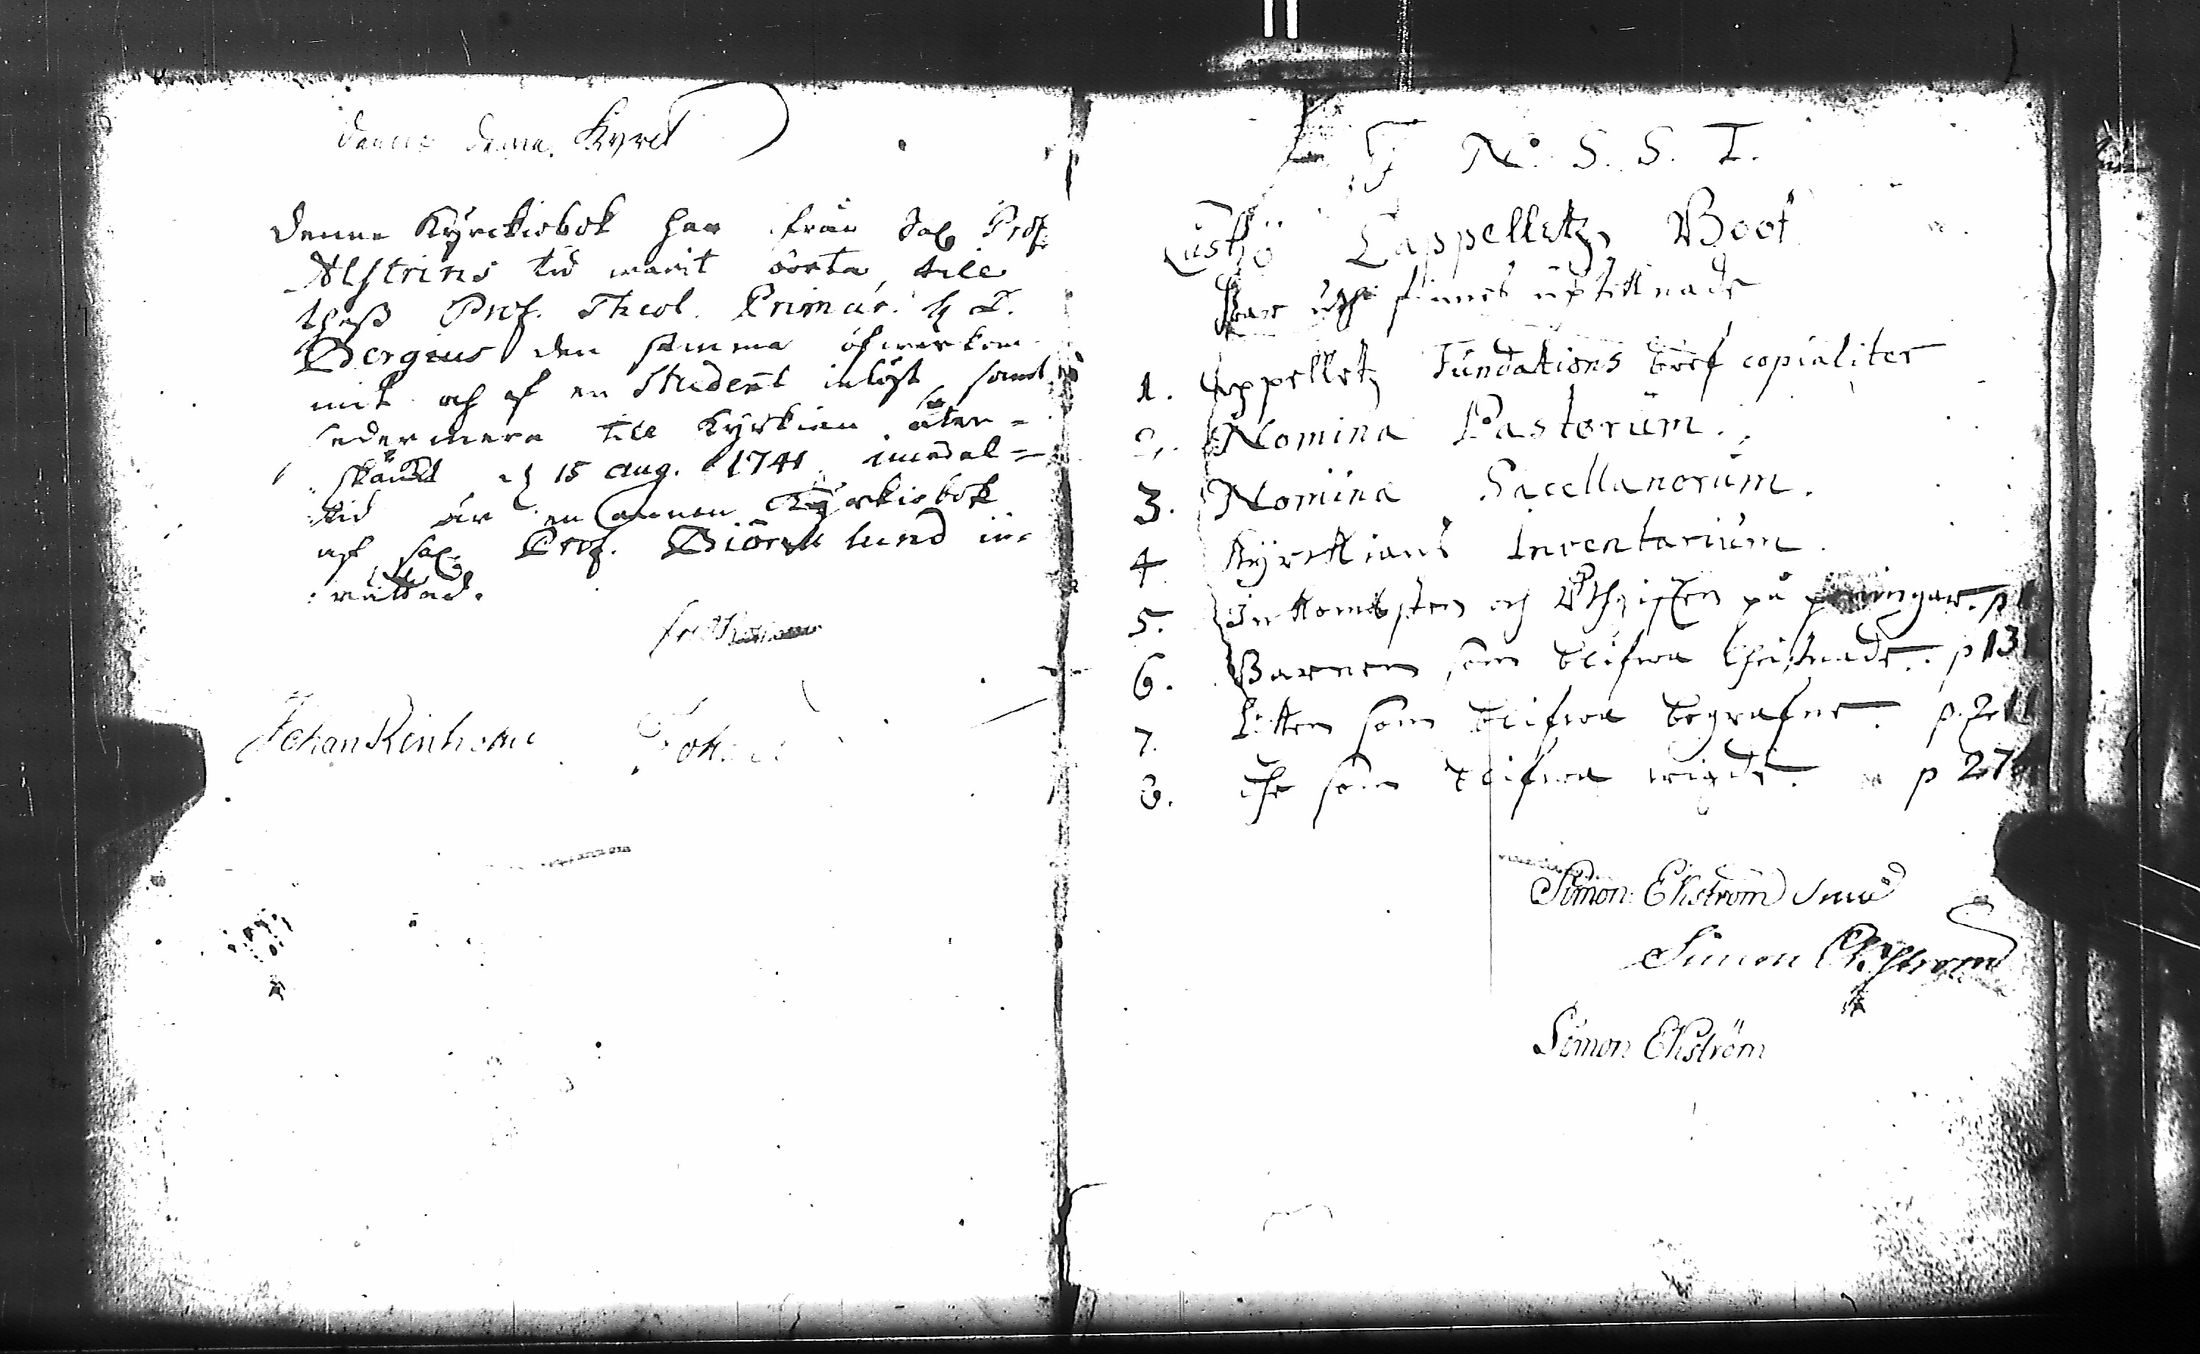 denne denna Kyrck
Denne Kyrckiobok har ifrån Sal Prof.
Alstrins tid warit borta, till
thess Prof. Theol. Primar. h T.
Bergius den samma öfwerkom-
mit och af en Student inlöst samt
sedermera till Kyrkian åter-
skänckt d 15 aug. 1741 imedal-
tid är en annan Kyrkiobok
af sal. Prof. Biörklund in-
rättad.
Johan Reinhom Johan
J N. S. S. T.
Cappelletz Book
Har uthi finnes uptecknade
1. Cappelletz Fundations bref copialiter
2. Nomina Pastorum.
3. Nomina Sacellanorum.
4 Kyrckians Inventarium.
5. Inkombsten och Uthgiften på penningar. p 1
6. Barnen som blifwa Christnade. p 131
7. Liken som blifwa begrafne. p. 211
8. The som blifwa wigde. p 27
Simon Ekström
Simon Ekström
Simon Ekström